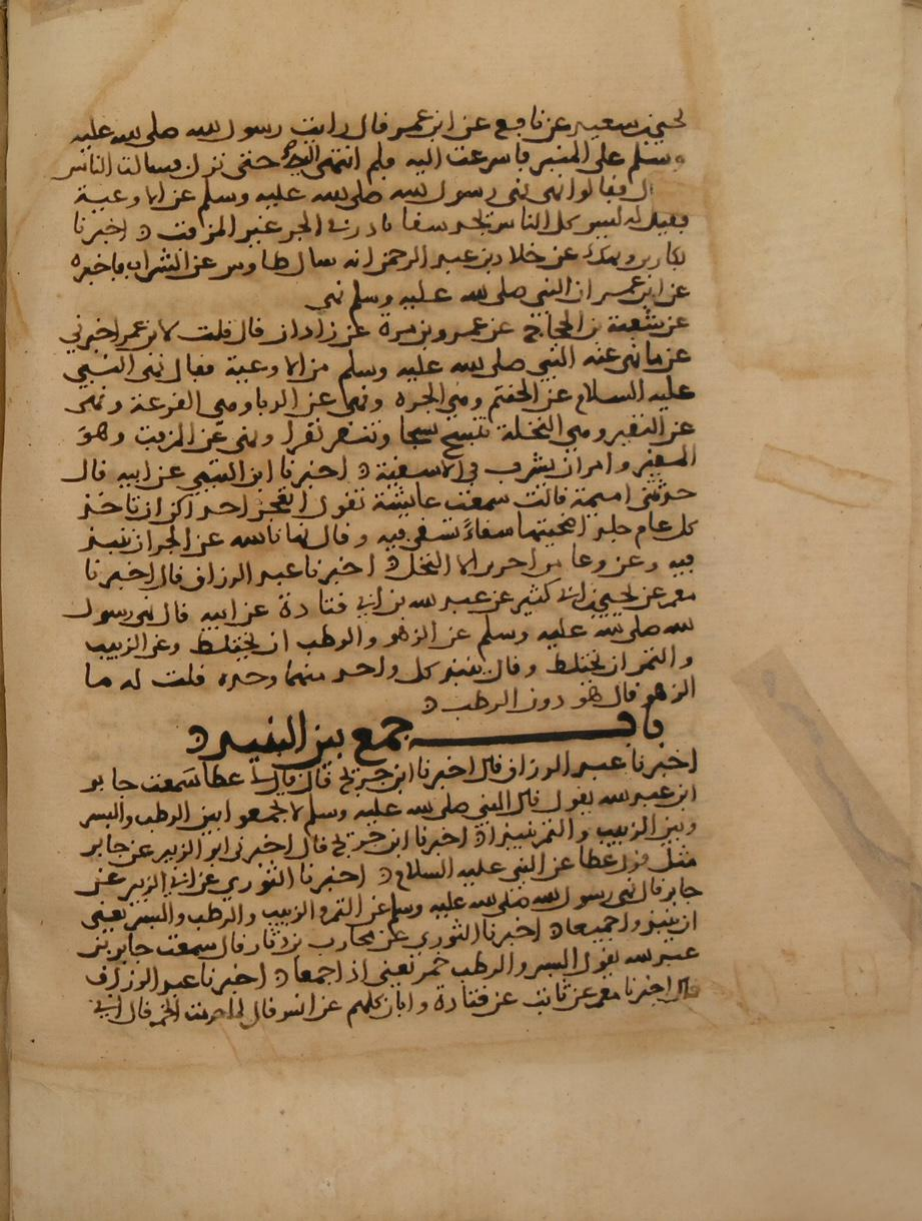 يحيى بن سعيد عن نافع عن ابن عمر قال رايت رسول الله صلى الله عليه
وسلم على المنبر فاسرعت اليه فلم انتهى اليه حتى نزل فسالت الناس
قال فقالوا نهى رسول الله صلى الله عليه وسلم عن الاوعية
فقيل له ليس كل الناس يجد سقا فاذن في الجر غير المزفت اخبرنا
بكار عن خلاد بن عبد الرحمن انه سال طاوس عن الشراب فاخبره
عن ابن عمر ان النبي صلى الله عليه وسلم نهى
عن شعبة بن الحجاج عن عمرو بن مرة عن زاذان قال قلت لابن عمر اخبرني
عن ما نهى عنه النبي صلى الله عليه وسلم من الاوعية فقال نهى النبي
عليه السلام عن الحنتم وهي الجره ونهى عن الدبا وهي القرعة ونهى
عن النقير وهي النخلة تنسح نسحا وتنقر نقرا ونهى عن المزفت وهو
المقير وامر ان يشرب في الاسقية اخبرنا ابن التيمي عن ابيه قال
حدثتني اميمة قالت سمعت عايشة تقول اتعجز احداكن ان تاخذ
كل عام جلد اضحيتها سقاءً تسقى فيه وقال نهانا الله عن الجر ان ينبذ
فيه وعن وعا من اخرين الا الخل اخبرنا عبد الرزاق قال اخبرنا
معمر عن يحيى بن ابي كثير عن عبد الله بن ابي قتادة عن ابيه قال نهى رسول
الله صلى الله عليه وسلم عن الزهو والرطب ان يختلط وعن الزبيب
والتمر ان يختلط وقال ينبذ كل واحد منهما وحده قلت له ما
الزهو قال هو دون الرطب
باب جمع بين النبيذ
اخبرنا عبد الرزاق قال اخبرنا ابن جريج قال قال لي عطا سمعت جابر
ابن عبد الله يقول قال النبي صلى الله عليه وسلم لا تجمعوا بين الرطب والبسر
وبين الزبيب والتمر نبيذا اخبرنا ابن جريج قال اخبرني ابو الزبير عن جابر
مثل قول عطا عن النبي عليه السلام اخبرنا الثوري عن ابي الزبير عن
جابر قال نهى رسول الله صلى الله عليه وسلم عن التمر والزبيب والرطب والبسر يعني
ان ينبذوا جميعا اخبرنا الثوري عن محارب بن دثار قال سمعت جابر بن
عبد الله يقول البسر والرطب خمر يعني اذا جمعا اخبرنا عبد الرزاق
قال اخبرنا معمر عن ثابت عن قتادة وابان كلهم عن انس قال لما حرمت الخمر قال اني